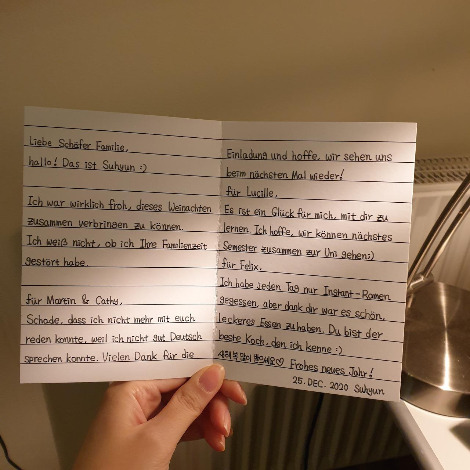 Liebe Schäfer Familie,
hallo! Das ist Suhyun :)
Ich war wirklich froh, dieses Weinachten
zusammen verbringen zu können.
Ich weiß nicht, ob ich Ihre Familienzeit
gestört habe.
für Martin & Cathy,
Schade, dass ich nicht mehr mit euch
reden konnte, weil ich nicht gut Deutsch
sprechen konnte. Vielen Dank für die
Einladung und hoffe, wir sehen uns
beim nächsten Mal wieder!
für Lucille,
Es ist ein Glück für mich, mit dir zu
lernen. Ich hoffe, wir können nächstes
Semester zusammen zur Uni gehen:)
für Felix,
Ich habe jeden Tag nur Instant-Ramen
gegessen, aber dank dir war es schön,
leckeres Essen zuhaben. Du bist der
beste Koch, den ich kenne :)
Frohes neues Jahr!
25. DEC. 2020 Suhyun